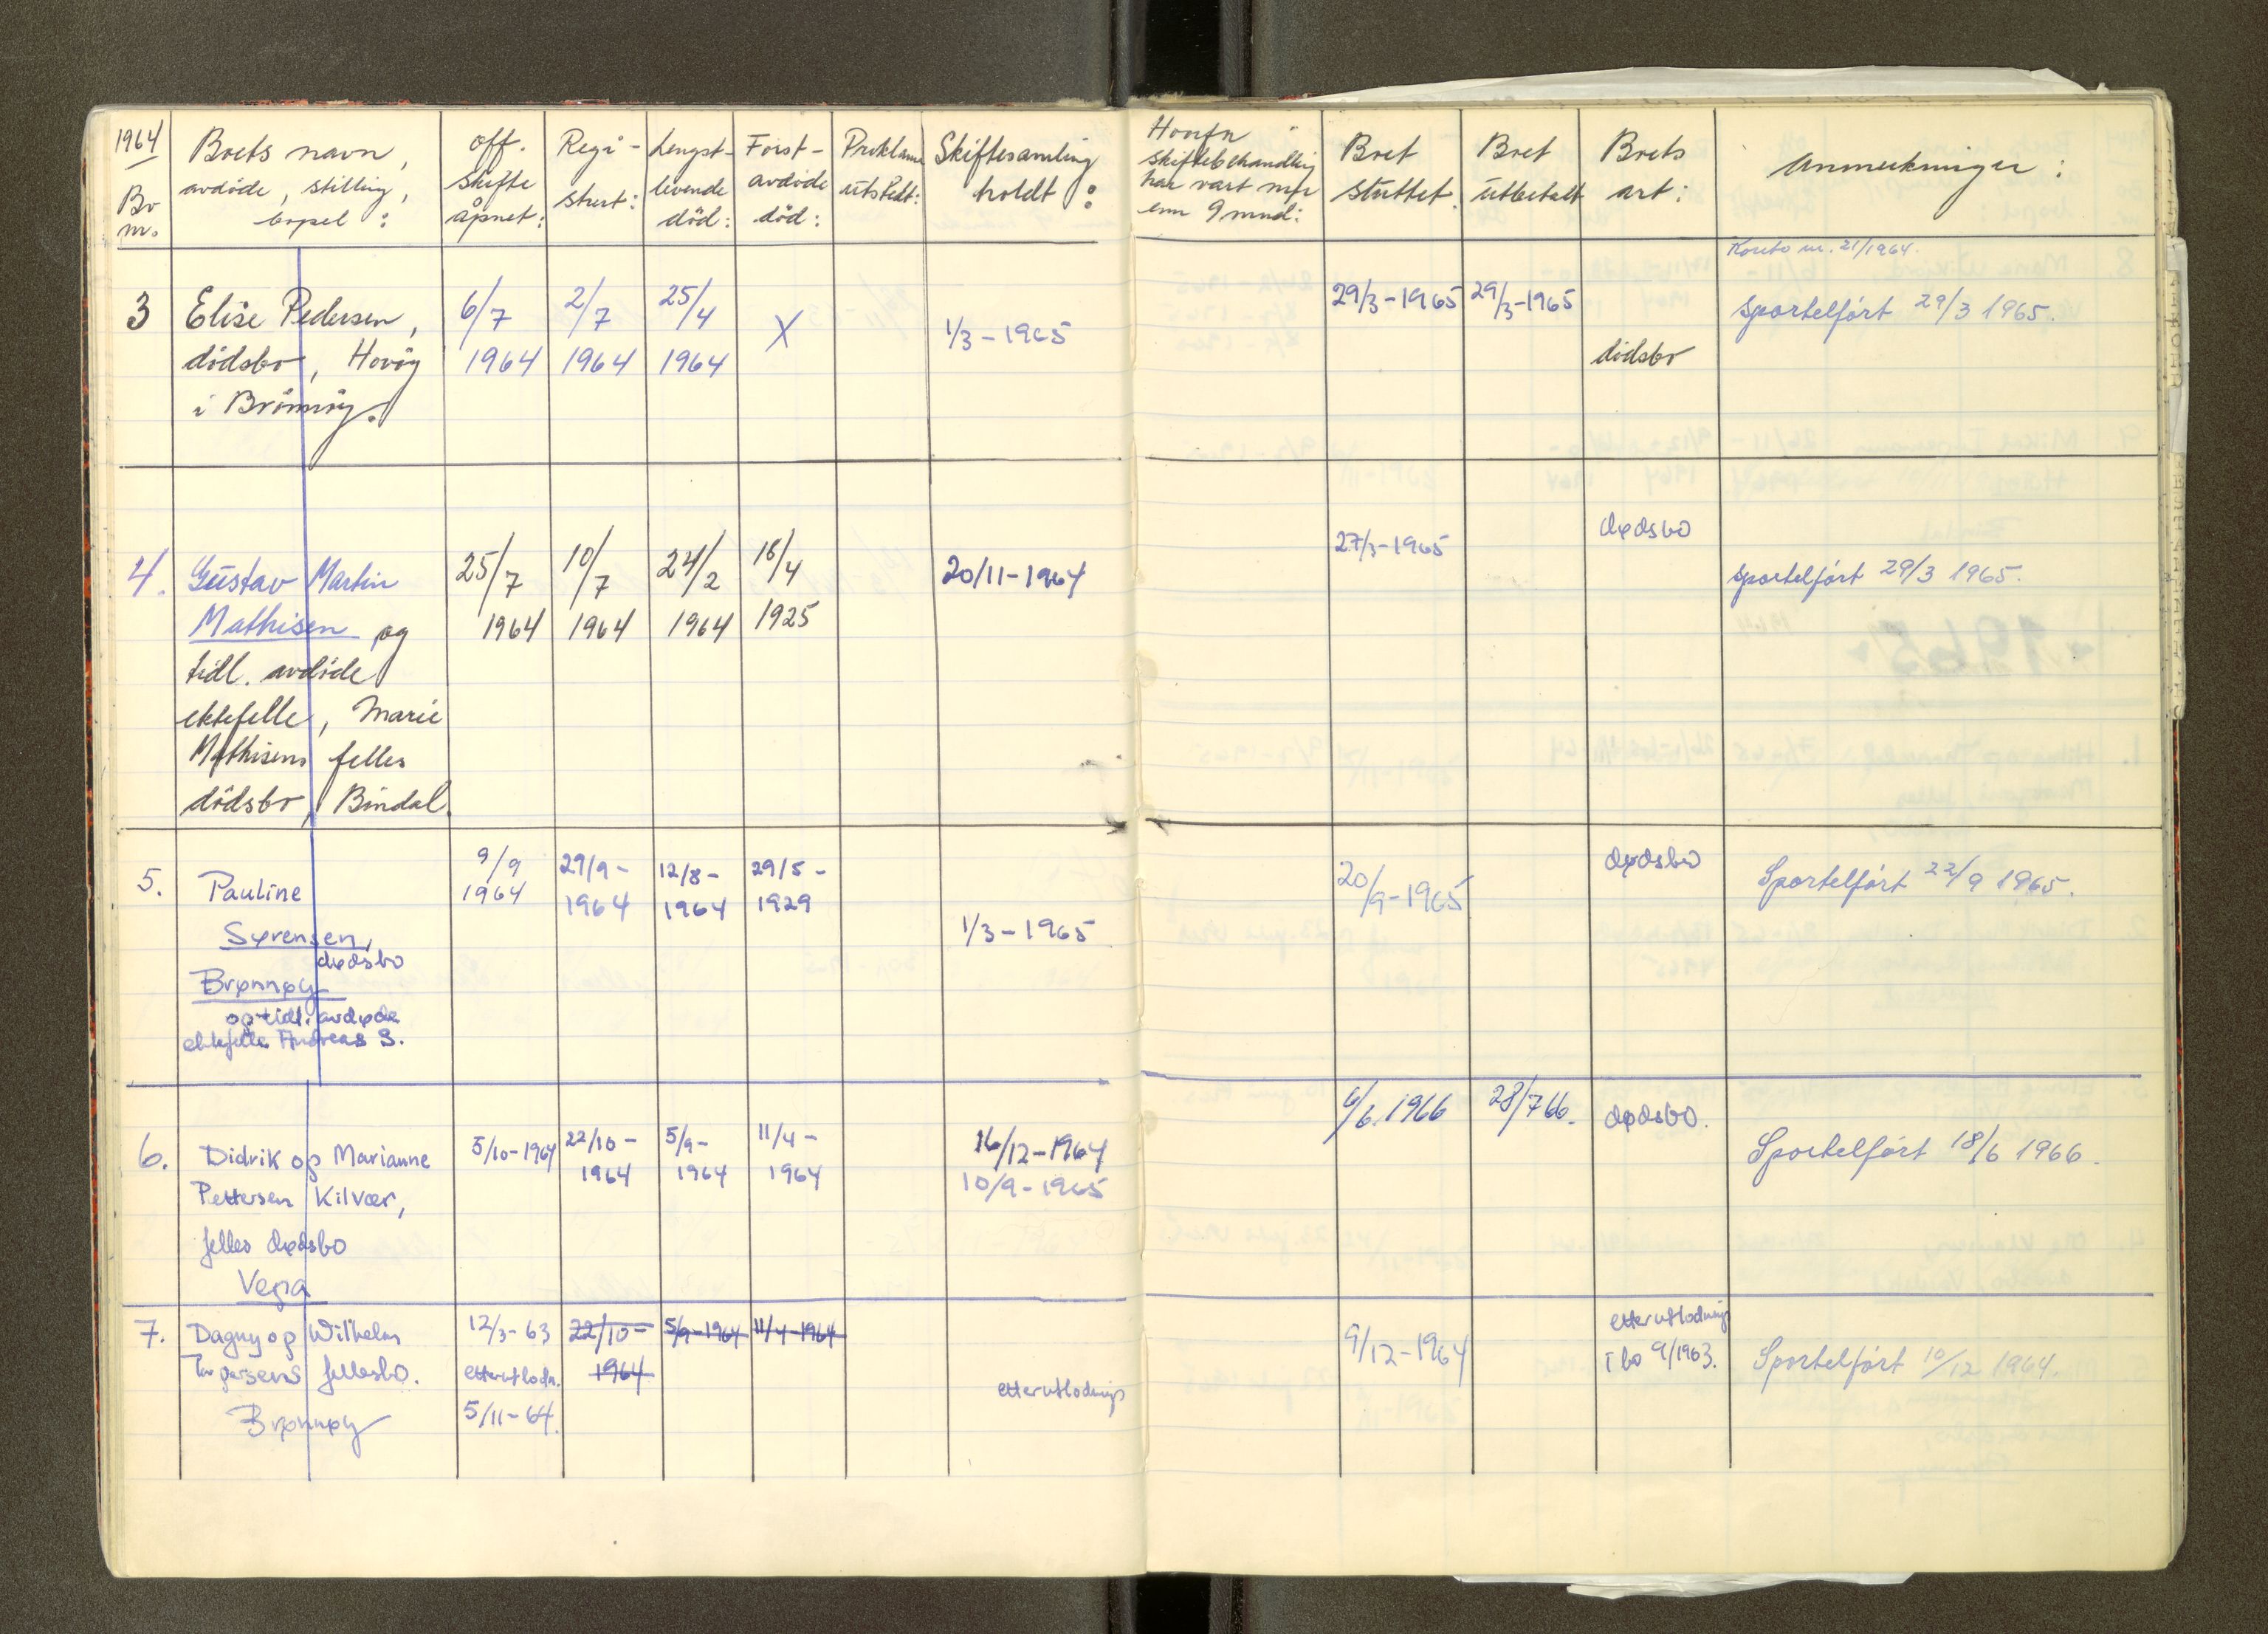 1964
Bo
nr.
Boets navn,
avdöde, stilling,
bopel:
Off.
skifte
åpnet:
Regi-
strert:
Lengst-
levende
död:
Först-
avdöde
död:
Proklama
utstedt:
Skiftesamling
holdt:
Hvorfor
skiftebehandling
har vart mer
enn 9 mnd:
Boet
sluttet.
Boet
utbetalt
Boets
art:
Anmerkninger:
3
Elise Pedersen,
dödsbo, Horöy
i Brönnöy.
6/7
1964
2/7
1964
25/4
1964
X
1/3-1965
29/3-1965
29/3-1965
dödsbo
Konto nr. 21/1964.
Sportelfört 29/3 1965.
4.
Gustav Martin
Mathisen og
tidl. avdöde
ektefelle, Marie
Mathisens felles
dödsbo, Bindal.
25/7
1964
10/7
1964
24/2
1964
18/4
1925
20/11-1964
27/3-1965
dødsbo
Sportelfört 29/3 1965.
5.
Pauline
Sørensen,
dødsbo
Brønnøy
og tidl. avdøde
ektefelle Andreas S.
9/9
1964
29/9-
1964
12/8-
1964
29/5-
1929
1/3-1965
20/9-1965
dødsbo
Sportelfört 22/9 1965.
6.
Didrik og Marianne
Pettersen Kilvær,
felles dødsbo
Vega
5/10-1964
22/10-
1964
5/9-
1964
11/4-
1964
16/12-1964
10/9-1965
6/6.1966
28/7 66.
dødsbo.
Sportelfört 18/6 1966.
7.
Dagny og Wilhelm
Torgersens fellesbo.
Brønnøy
12/3-63
etterutlodn.
5/11-64.
22/10-
1964
5/9-1964
11/4-1964
etterutlodning
9/12-1964
etterutlodning
i bo 9/1963.
Sportelfört 10/12 1964.